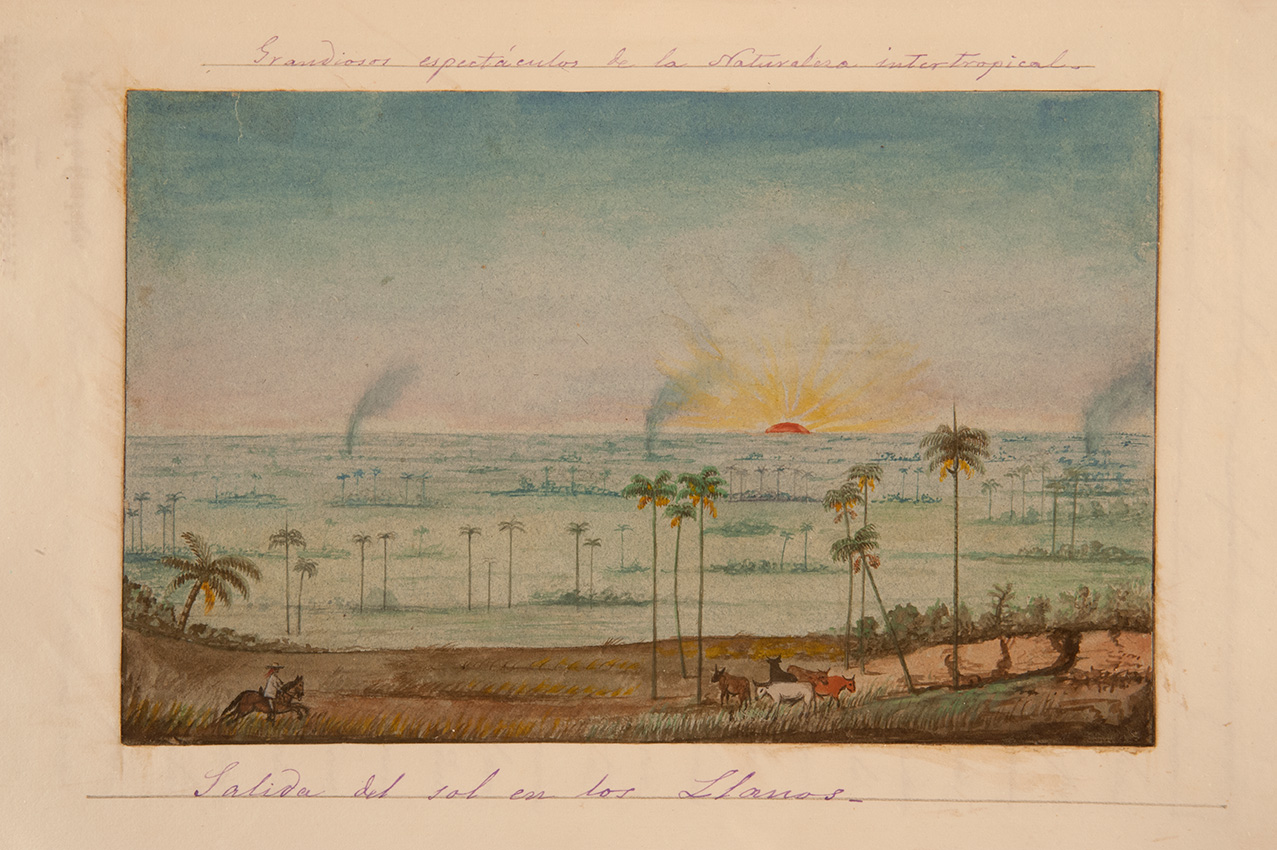 Grandiosos espectáculos de la Naturaleza intertropical_
Salida del sol en los Llanos_